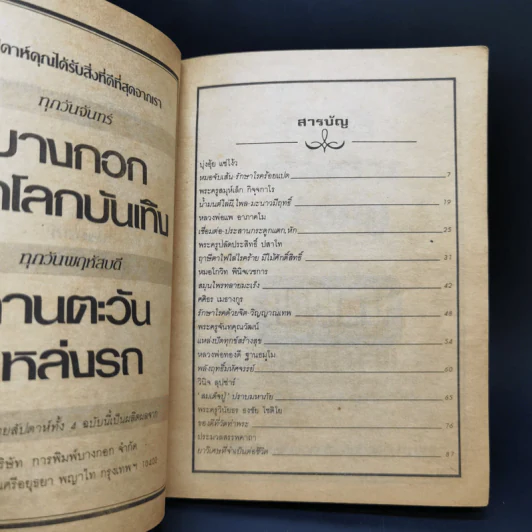 ดาห์คุณได้รับสิ่งที่ดีที่สุดจากเรา
ทุกวันจันทร์
บางกอก
โลกบันเทิง
ทุกวันพฤหัสบดี
ทานตะวัน
หล่นรก
ายสัปดาห์ทั้ง 4 ฉบับนี้เป็นผลิตผลจาก
ริษัท การพิมพ์บางกอก จำกัด
ศรีอยุธยา พญาไท กรุงเทพฯ 10400
สารบัญ
บุ่งตุ้ย แซ่โง้ว
หมอจับเส้น รักษาโรคร้อยแปด 7
พระครูสมุห์เล็ก กิจฺจกาโร
น้ำมนต์ใส่ผีไพล-มะนาวมีฤทธิ์ 19
หลวงพ่อแพ อาภาคโม
เชื่อมต่อ-ประสานกระดูกแตก, หัก 25
พระครูปลัดประสิทธิ์ ปสาโท
ฤาษีตาไฟไล่โรคร้าย มีไม้ศักดิ์สิทธิ์ 31
หมอโกวิท พินิจเวชการ
สมุนไพรทลายมะเร็ง 42
คศิธร เมธางกูร
รักษาโรคด้วยจิต-วิญญาณเทพ 48
พระครูจันทคุณวัฒน์
แหล่งปัดทุกข์สร้างสุข 54
หลวงพ่อทองดี ฐานธมฺโม
พลังฤทธิ์มหัศจรรย์ 60
วินิจ ลุปซ่าร์
"สมเด็จปู่" ปราบมหาภัย 65
พระครูวินัยธร ธงชัย โชติโย
ของดีที่วัดท่าพระ 76
ประมวลสรรพคาถา
ยาวิเศษที่จำเป็นต่อชีวิต 87